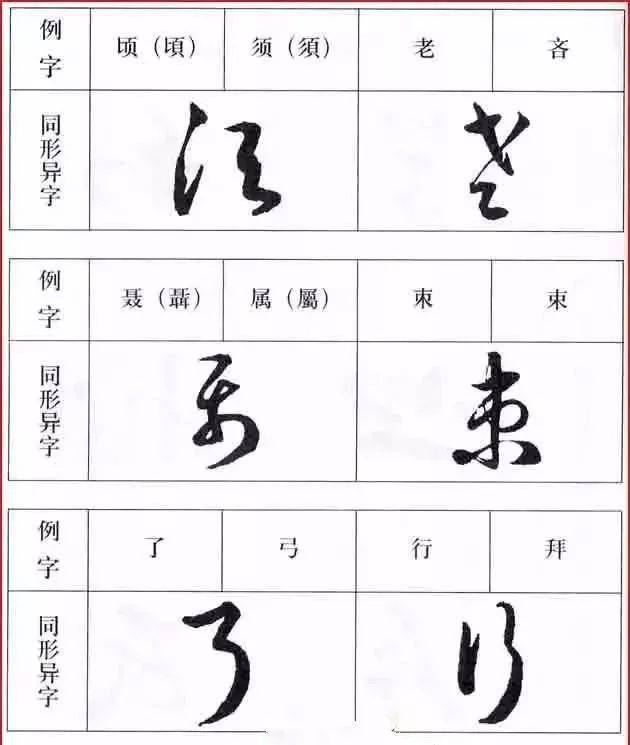 例字 顷（頃） 须（須） 老 吝
同形异字
例字 聂（聶） 属（屬） 朿 束
同形异字
例字 了 弓 行 拜
同形异字